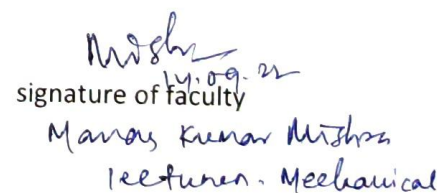 Mishra
14.09.22
signature of faculty
Manas Kumar Mishra
lecturer. Mechanical